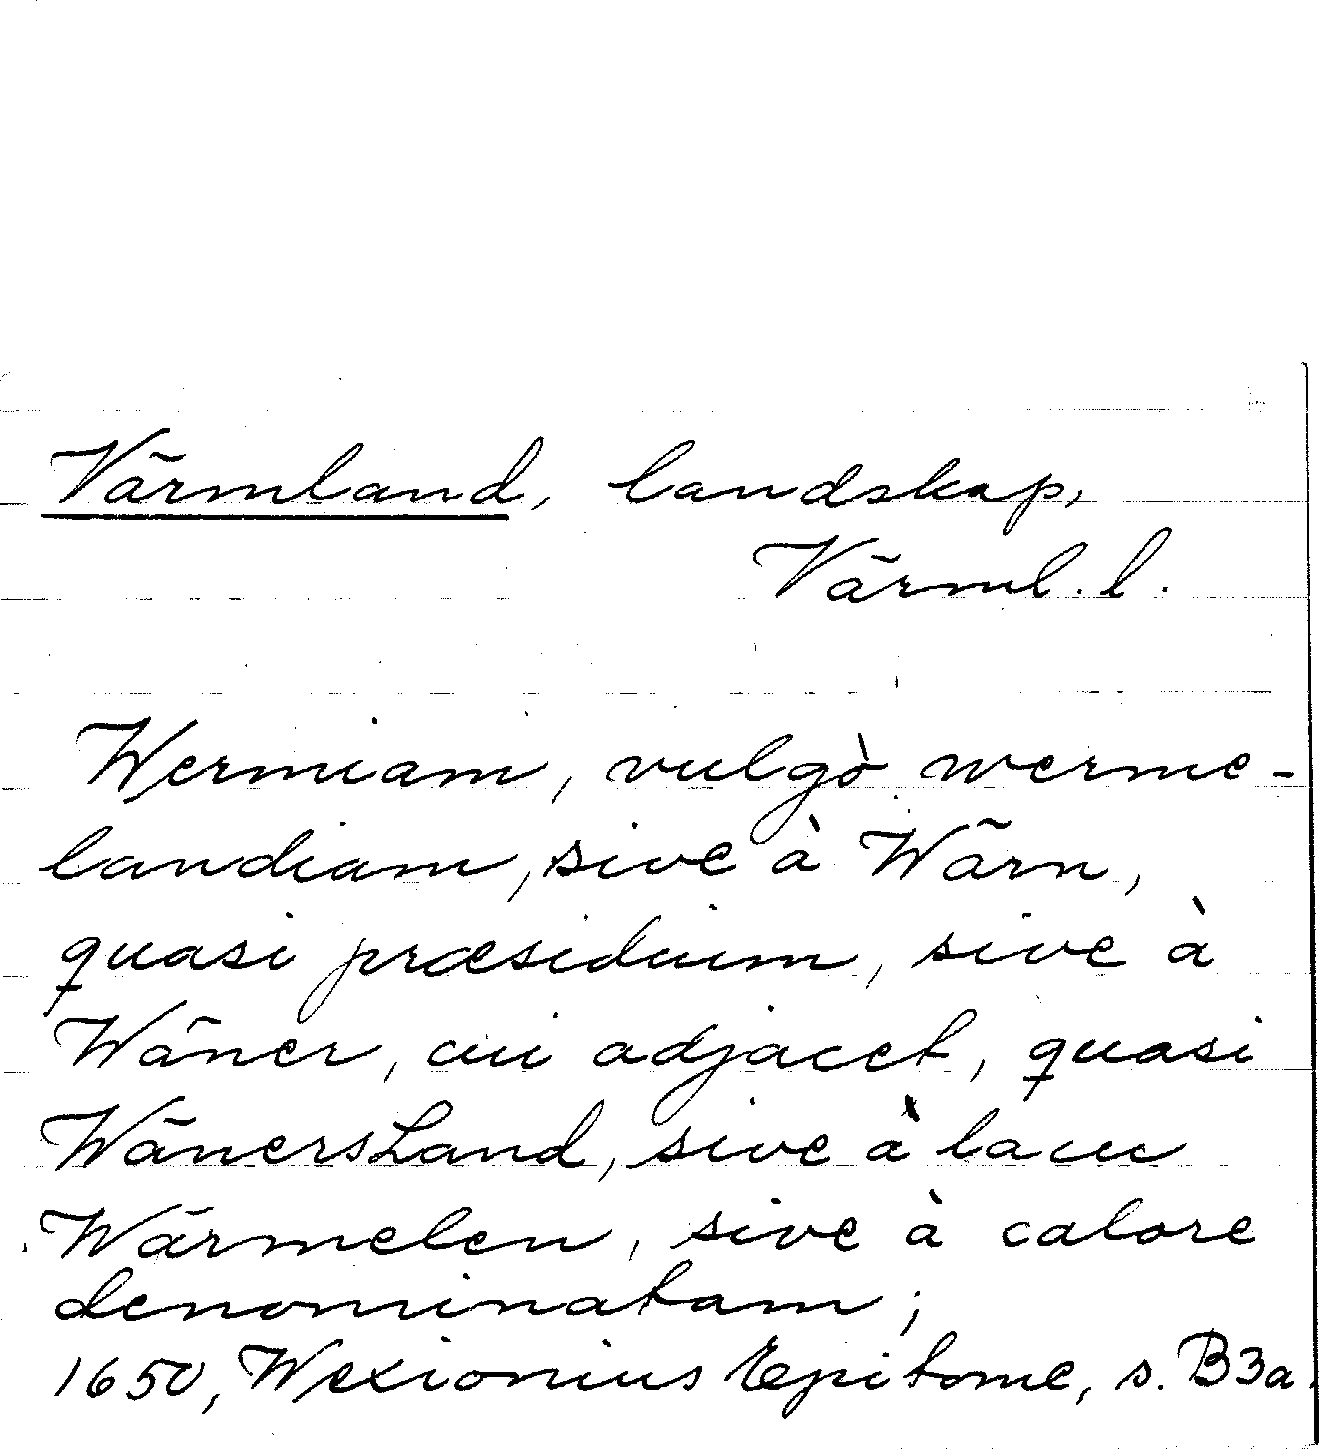 Värmland, landskap,
Värml. l.
Wermiam, vulgò werme-
landiam, sive à Wärn,
quasi præsidium, sive à
Wäner, cui adjacet, quasi
WänersLand, sive à lacu
Wärmelen, sive à calore
denominatam;
1650, Wexionius Epitome, s. B3a.